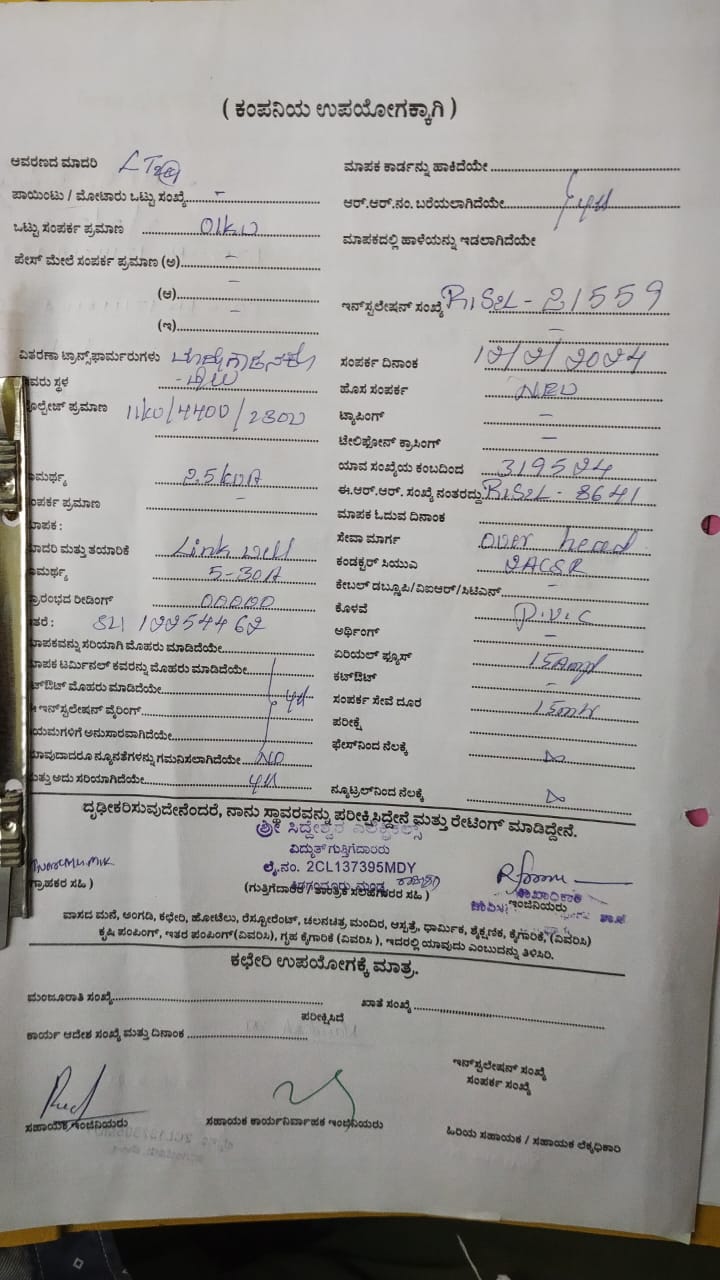 ( ಕಂಪನಿಯ ಉಪಯೋಗಕ್ಕಾಗಿ )
ಆವರಣದ ಮಾದರಿ LT2(a)
ಪಾಯಿಂಟು / ಮೋಟಾರು ಒಟ್ಟು ಸಂಖ್ಯೆ -
ಒಟ್ಟು ಸಂಪರ್ಕ ಪ್ರಮಾಣ 01KW
ಪೇಸ್ ಮೇಲೆ ಸಂಪರ್ಕ ಪ್ರಮಾಣ (ಅ) -
(ಆ) -
(ಇ) -
ವಿತರಣಾ ಟ್ರಾನ್ಸ್‌ಫಾರ್ಮರುಗಳು
ವರು ಸ್ಥಳ
ೋಲ್ಟೇಜ್ ಪ್ರಮಾಣ 11KV/4400/230V
ಾಮರ್ಥ್ಯ 25KVA
ಂಪರ್ಕ ಪ್ರಮಾಣ -
ಾಪಕ :
ಾದರಿ ಮತ್ತು ತಯಾರಿಕೆ Link well
ಾಮರ್ಥ್ಯ 5-30A
್ರಾರಂಭದ ರೀಡಿಂಗ್ 00000
ತರೆ : 12254462
ಾಪಕವನ್ನು ಸರಿಯಾಗಿ ಮೊಹರು ಮಾಡಿದೆಯೇ
ಾಪಕ ಟರ್ಮಿನಲ್ ಕವರನ್ನು ಮೊಹರು ಮಾಡಿದೆಯೇ
ಟ್‌ಔಟ್ ಮೊಹರು ಮಾಡಿದೆಯೇ
ಇನ್‌ಸ್ಟಲೇಷನ್ ವೈರಿಂಗ್
ಯಮಗಳಿಗೆ ಅನುಸಾರವಾಗಿದೆಯೇ
ಾವುದಾದರೂ ನ್ಯೂನತೆಗಳನ್ನು ಗಮನಿಸಲಾಗಿದೆಯೇ NO
ುತ್ತು ಅದು ಸರಿಯಾಗಿದೆಯೇ yes
ಮಾಪಕ ಕಾರ್ಡನ್ನು ಹಾಕಿದೆಯೇ
ಆರ್.ಆರ್.ನಂ. ಬರೆಯಲಾಗಿದೆಯೇ yes
ಮಾಪಕದಲ್ಲಿ ಹಾಳೆಯನ್ನು ಇಡಲಾಗಿದೆಯೇ
ಇನ್‌ಸ್ಟಲೇಷನ್ ಸಂಖ್ಯೆ 21559
-
ಸಂಪರ್ಕ ದಿನಾಂಕ 12/2/2024
ಹೊಸ ಸಂಪರ್ಕ NEW
ಟ್ಯಾಪಿಂಗ್ -
ಟೆಲಿಫೋನ್ ಕ್ರಾಸಿಂಗ್ -
ಯಾವ ಸಂಖ್ಯೆಯ ಕಂಬದಿಂದ 319524
ಈ.ಆರ್.ಆರ್. ಸಂಖ್ಯೆ ನಂತರದ್ದು 8641
ಮಾಪಕ ಓದುವ ದಿನಾಂಕ
ಸೇವಾ ಮಾರ್ಗ over head
ಕಂಡಕ್ಟರ್ ಸಿಯುಎ 2ACSR
ಕೇಬಲ್ ಡಬ್ಲೂಪಿ/ವಿಐಆರ್/ಸಿಟಿಎಸ್ -
ಕೊಳವೆ P.V.C
ಅರ್ಥಿಂಗ್ -
ಏರಿಯಲ್ ಫ್ಯೂಸ್ 15Amp
ಕಟ್‌ಔಟ್ -
ಸಂಪರ್ಕ ಸೇವೆ ದೂರ 15mtr
ಪರೀಕ್ಷೆ
ಫೇಸ್‌ನಿಂದ ನೆಲಕ್ಕೆ
ನ್ಯೂಟ್ರಲ್‌ನಿಂದ ನೆಲಕ್ಕೆ
ದೃಢೀಕರಿಸುವುದೇನೆಂದರೆ, ನಾನು ಸ್ಥಾವರವನ್ನು ಪರೀಕ್ಷಿಸಿದ್ದೇನೆ ಮತ್ತು ರೇಟಿಂಗ್ ಮಾಡಿದ್ದೇನೆ.
ಶ್ರೀ ಸಿದ್ದೇಶ್ವರ ಎಲೆಕ್ಟ್ರಿಕಲ್ಸ್
ವಿದ್ಯುತ್ ಗುತ್ತಿಗೆದಾರರು
ಲೈ.ನಂ. 2CL137395MDY
್ರಾಹಕರ ಸಹಿ )
(ಗುತ್ತಿಗೆದಾರರ / ತಾಂತ್ರಿಕ ಸಲಹೆಗಾರರ ಸಹಿ )
ಶಾಖಾಧಿಕಾರಿ
ಇಂಜಿನಿಯರು
ವಾಸದ ಮನೆ, ಅಂಗಡಿ, ಕಛೇರಿ, ಹೋಟೆಲು, ರೆಸ್ಟೋರೆಂಟ್, ಚಲನಚಿತ್ರ ಮಂದಿರ, ಆಸ್ಪತ್ರೆ, ಧಾರ್ಮಿಕ, ಶೈಕ್ಷಣಿಕ, ಕೈಗಾರಿಕೆ, (ವಿವರಿಸಿ)
ಕೃಷಿ ಪಂಪಿಂಗ್, ಇತರ ಪಂಪಿಂಗ್(ವಿವರಿಸಿ), ಗೃಹ ಕೈಗಾರಿಕೆ (ವಿವರಿಸಿ ), ಇದರಲ್ಲಿ ಯಾವುದು ಎಂಬುದನ್ನು ತಿಳಿಸಿರಿ.
ಕಛೇರಿ ಉಪಯೋಗಕ್ಕೆ ಮಾತ್ರ.
ಮಂಜೂರಾತಿ ಸಂಖ್ಯೆ
ಖಾತೆ ಸಂಖ್ಯೆ
ಪರೀಕ್ಷಿಸಿದೆ
ಕಾರ್ಯ ಆದೇಶ ಸಂಖ್ಯೆ ಮತ್ತು ದಿನಾಂಕ
ಇನ್‌ಸ್ಟಲೇಷನ್ ಸಂಖ್ಯೆ
ಸಂಪರ್ಕ ಸಂಖ್ಯೆ
ಸಹಾಯಕ ಇಂಜಿನಿಯರು
ಸಹಾಯಕ ಕಾರ್ಯನಿರ್ವಾಹಕ ಇಂಜಿನಿಯರು
ಹಿರಿಯ ಸಹಾಯಕ / ಸಹಾಯಕ ಲೆಕ್ಕಾಧಿಕಾರಿ